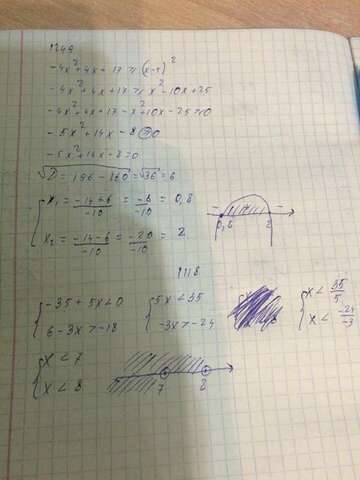 -4x²+4x+17 ≥ (x-5)²
-4x²+4x+17 ≥ x²-10x+25
-4x²+4x+17-x²+10x-25 ≥ 0
-5x²+14x-8 ≥ 0
-5x²+14x-8=0
√D = 196-160 = √36 = 6
x₁ = -14+6/-10 = -8/-10 = 0,8
- - 
0,8 2
x₂ = -14-6/-10 = -20/-10 = 2
-35+5x<0 5x<35 x< 35/5
6-3x>-18 -3x>-24 x< -24/-3
x<7
x<8
7 8